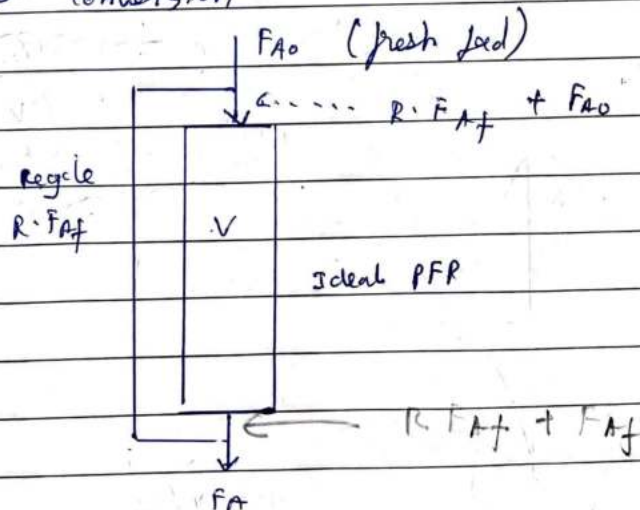 Conversion
F_A0 (fresh feed)
R. F_Af + F_A0
Recycle
R. F_Af
V
Ideal PFR
R F_Af + F_Af
F_A